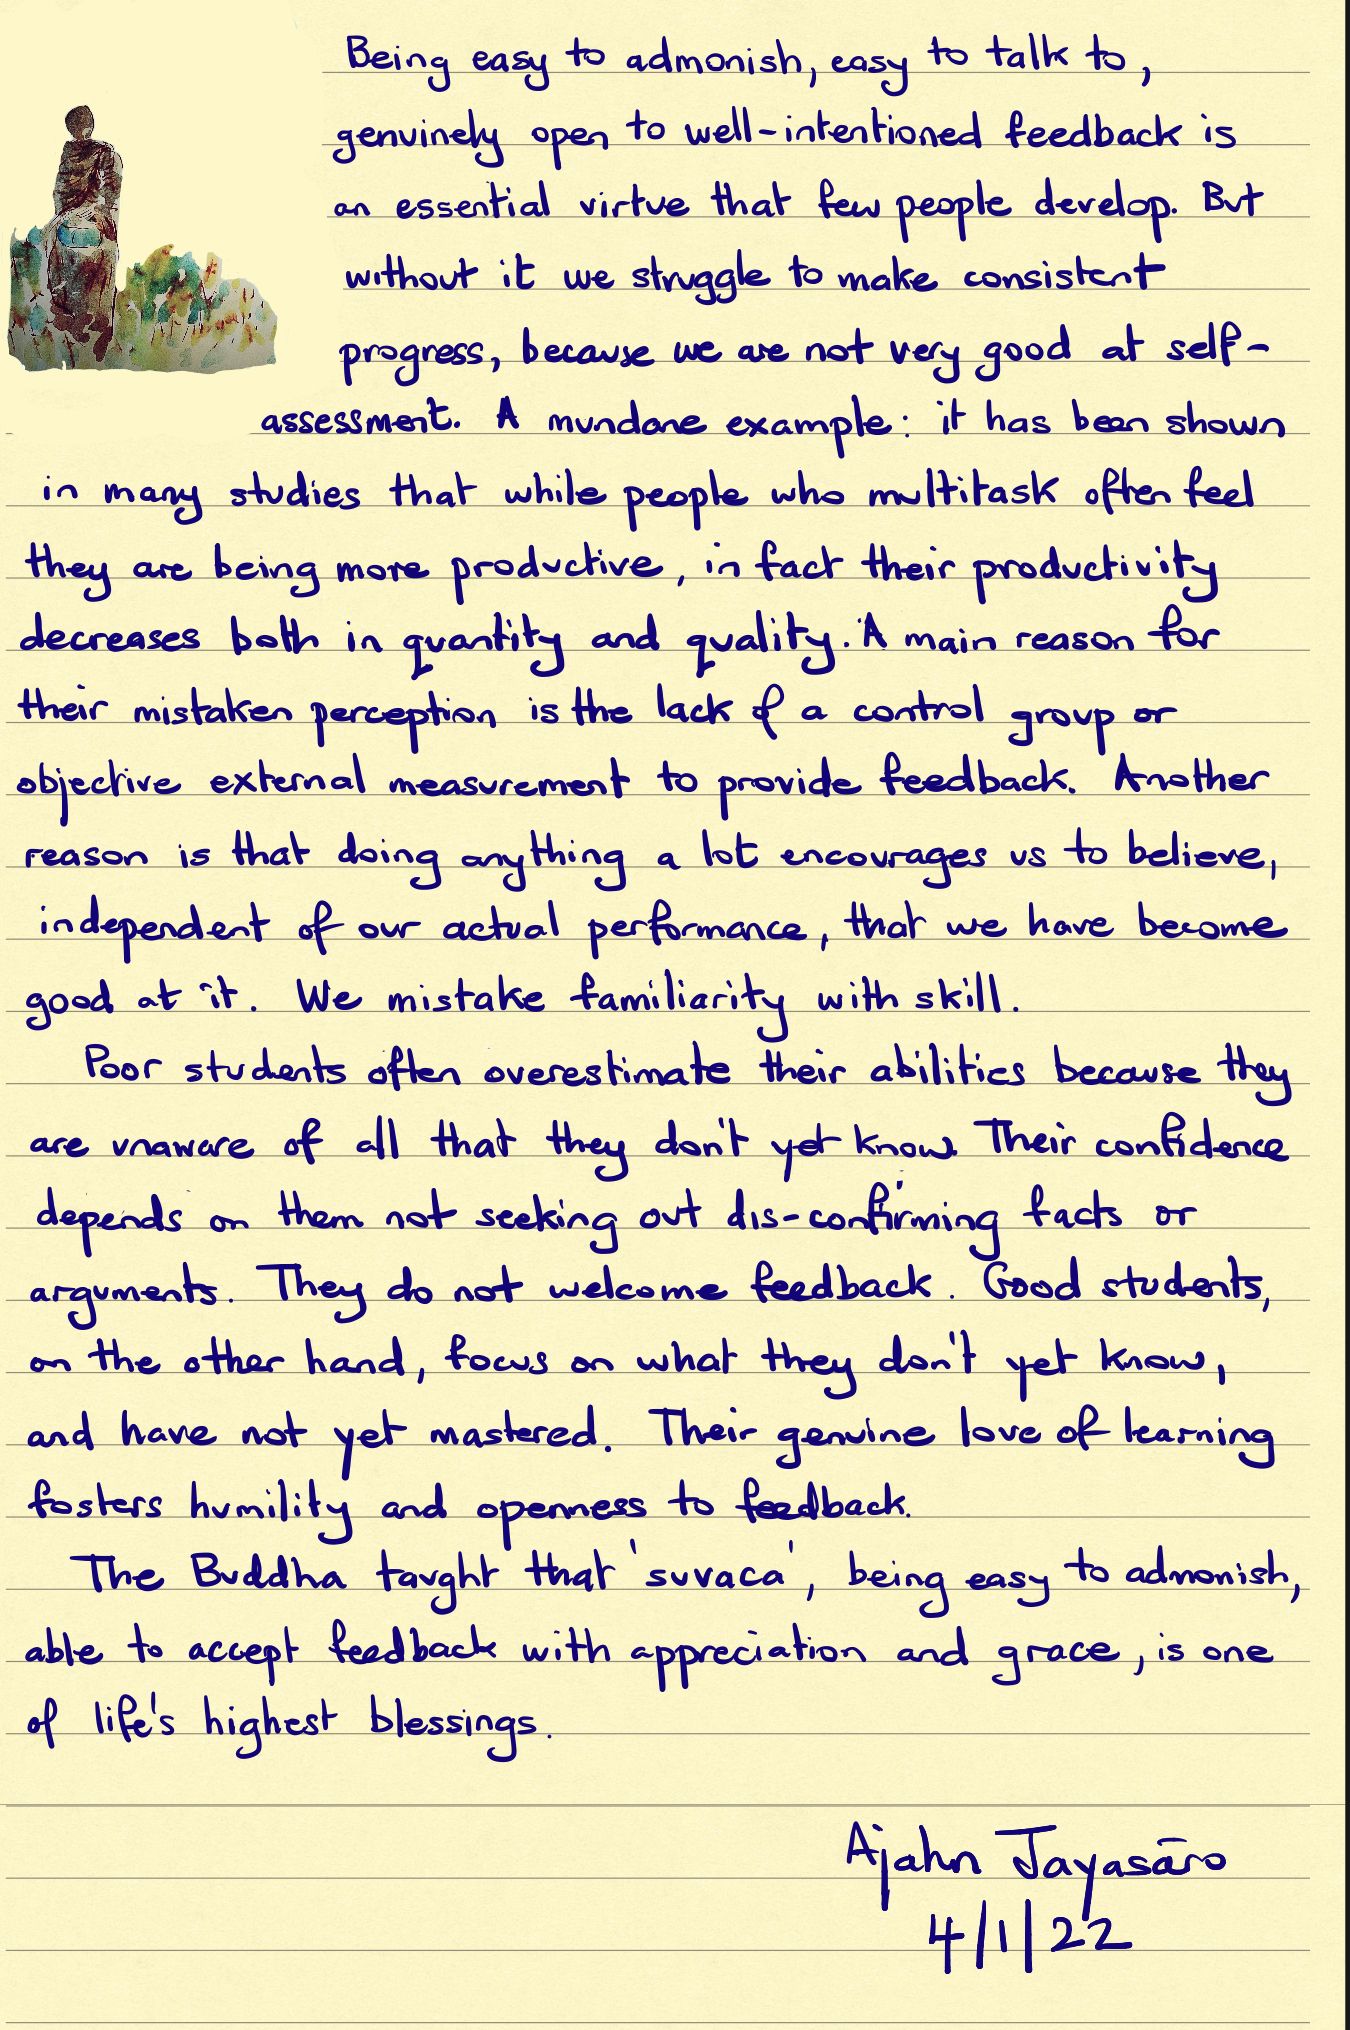 Being easy to admonish, easy to talk to,
genuinely open to well-intentioned feedback is
an essential virtue that few people develop. But
without it we struggle to make consistent
progress, because we are not very good at self-
assessment. A mundane example: it has been shown
in many studies that while people who multitask often feel
they are being more productive, in fact their productivity
decreases both in quantity and quality. A main reason for
their mistaken perception is the lack of a control group or
objective external measurement to provide feedback. Another
reason is that doing anything a lot encourages us to believe,
independent of our actual performance, that we have become
good at it. We mistake familiarity with skill.
Poor students often overestimate their abilities because they
are unaware of all that they don't yet know. Their confidence
depends on them not seeking out dis-confirming facts or
arguments. They do not welcome feedback. Good students,
on the other hand, focus on what they don't yet know,
and have not yet mastered. Their genuine love of learning
fosters humility and openness to feedback.
The Buddha taught that 'suvaca', being easy to admonish,
able to accept feedback with appreciation and grace, is one
of life's highest blessings.
Ajahn Jayasāro
4/1/22